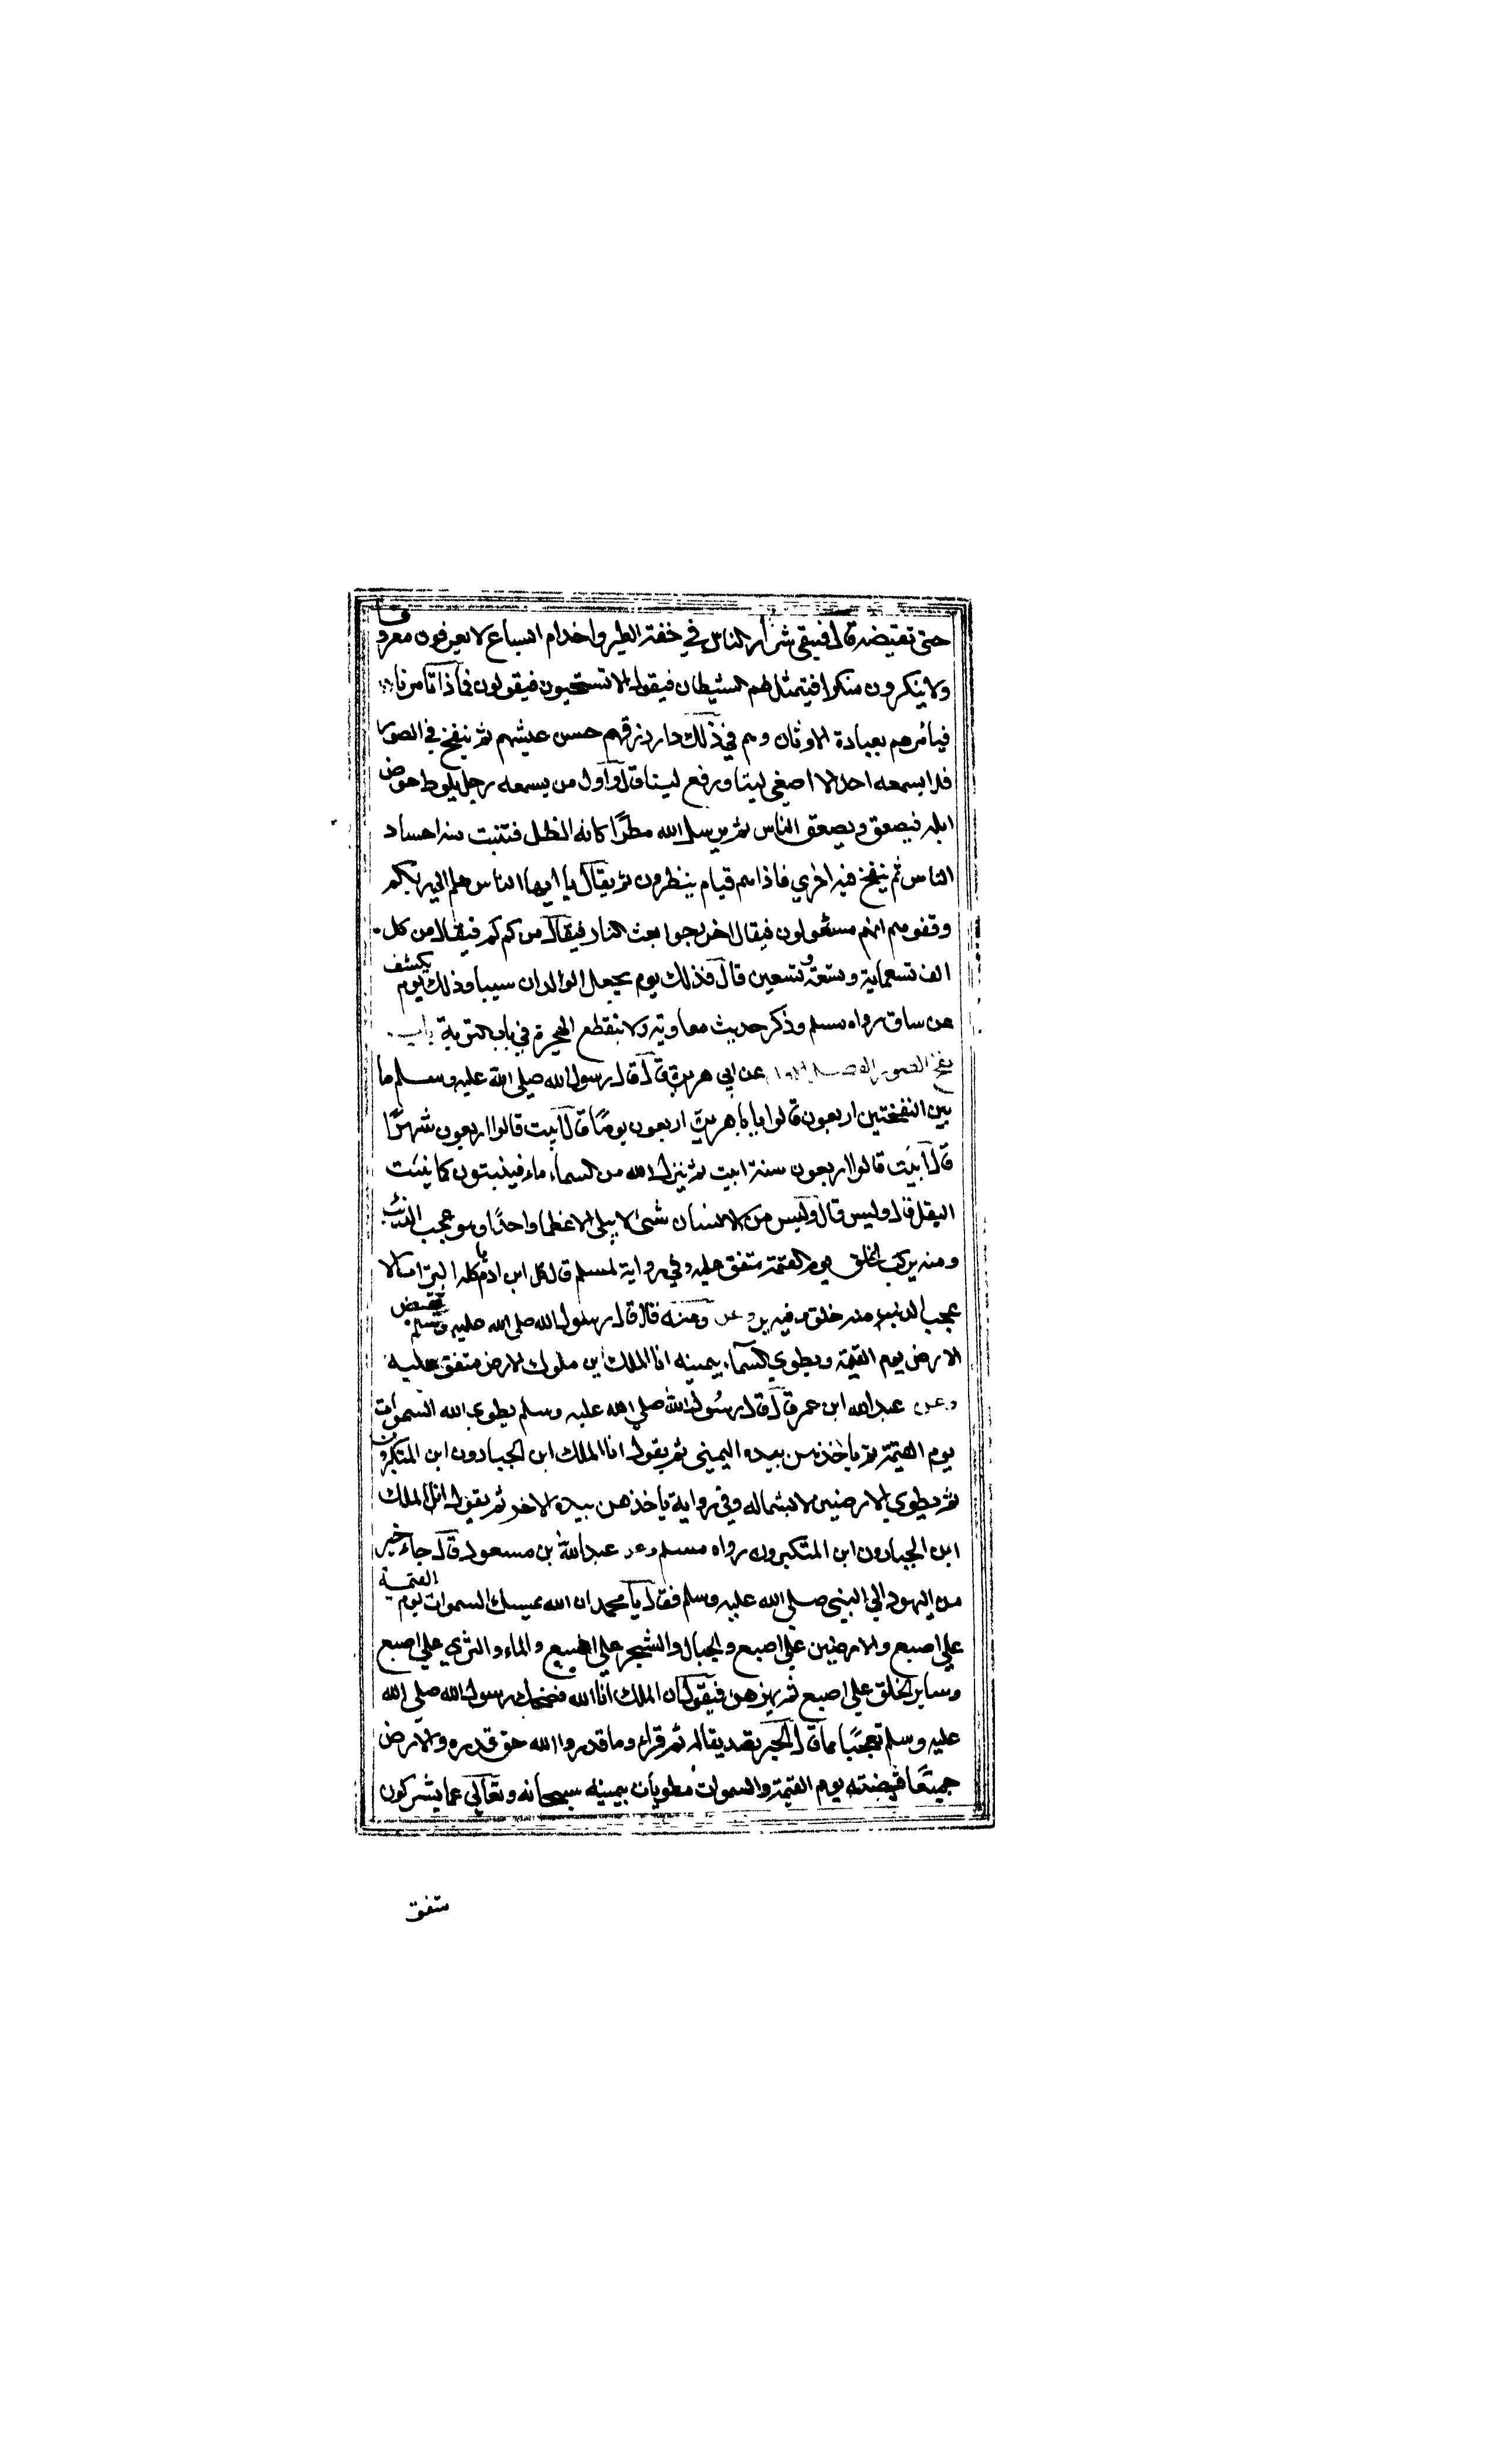 حتى تقبضه قال فيبقى شرار الناس في خفة الطير واحلام السباع لا يعرفون معروفا
ولا ينكرون منكرا فيتمثل لهم الشيطان فيقول الا تستحيون فيقولون فماذا تامرنا
فيأمرهم بعبادة الاوثان وهم في ذلك دار رزقهم حسن عيشهم ثم ينفخ في الصور
فلا يسمعه احد الا اصغى ليتا ورفع ليتا قال واول من يسمعه رجل يلوط حوض
ابله فيصعق ويصعق الناس ثم يرسل الله مطرًا كانه الظل فتنبت منه اجساد
الناس ثم ينفخ فيه اخري فاذا هم قيام ينظرون ثم يقال يا ايها الناس هلم الي ربكم
وقفوهم انهم مسئولون فيقال اخرجوا بعث النار فيقال من كم كم فيقال من كل
الف تسعماية وتسعة وتسعين قال فذلك يوم يجعل الوالدان شيبا وذلك يوم يكشف
عن ساق رواه مسلم وذكر حديث معاوية ولا ينقطع الهجرة في باب التوبة باب
نفخ الصور عن ابي هريرة قال قال رسول الله صلى الله عليه وسلم ما
بين النفختين اربعون قالوا يا با هريرة اربعون يومًا قال ابيت قالوا اربعون شهرًا
قال ابيت قالوا اربعون سنة ابيت ثم ينزل الله من السماء ماء فينبتون كما ينبت
البقل قال وليس قال وليس من الانسان شئ لا يبلى الا عظما واحدًا وهو عجب الذنب
ومنه يركب الخلق يوم القيمة متفق عليه وفي رواية لمسلم قال كل ابن ادم ياكله التراب الا
عجب الذنب منه خلق وفيه يركب وعنه قال قال رسول الله صلى الله عليه وسلم يقبض
الارض يوم القيمة ويطوي السماء بيمينه انا الملك اين ملوك الارض متفق عليه
وعن عبدالله ابن عمر قال قال رسول الله صلي الله عليه وسلم يطوي الله السموات
يوم القيمة ثم يأخذهن بيده اليمنى ثم يقول انا الملك اين الجبارون اين المتكبرون
ثم يطوي الارضين الا بشماله وفي رواية ياخذهن بيده الاخر ثم يقول انا الملك
اين الجبارون اين المتكبرون رواه مسلم وعن عبدالله بن مسعود قال جاء خبر
من اليهود الي النبي صلي الله عليه وسلم فقال يا محمد ان الله يمسك السموات يوم القيمة
علي اصبع والارضين علي اصبع والجبال والشجر علي اصبع والماء والثري علي اصبع
وساير الخلق علي اصبع ثم يهزهن فيقول انا الملك انا الله فضحك رسول الله صلي الله
عليه وسلم تعجبًا مما قال الحبر تصديقا له ثم قراء وما قدروا الله حق قدره والارض
جميعًا قبضته يوم القيمة والسموات مطويات بيمينه سبحانه وتعالي عما يشركون
متفق